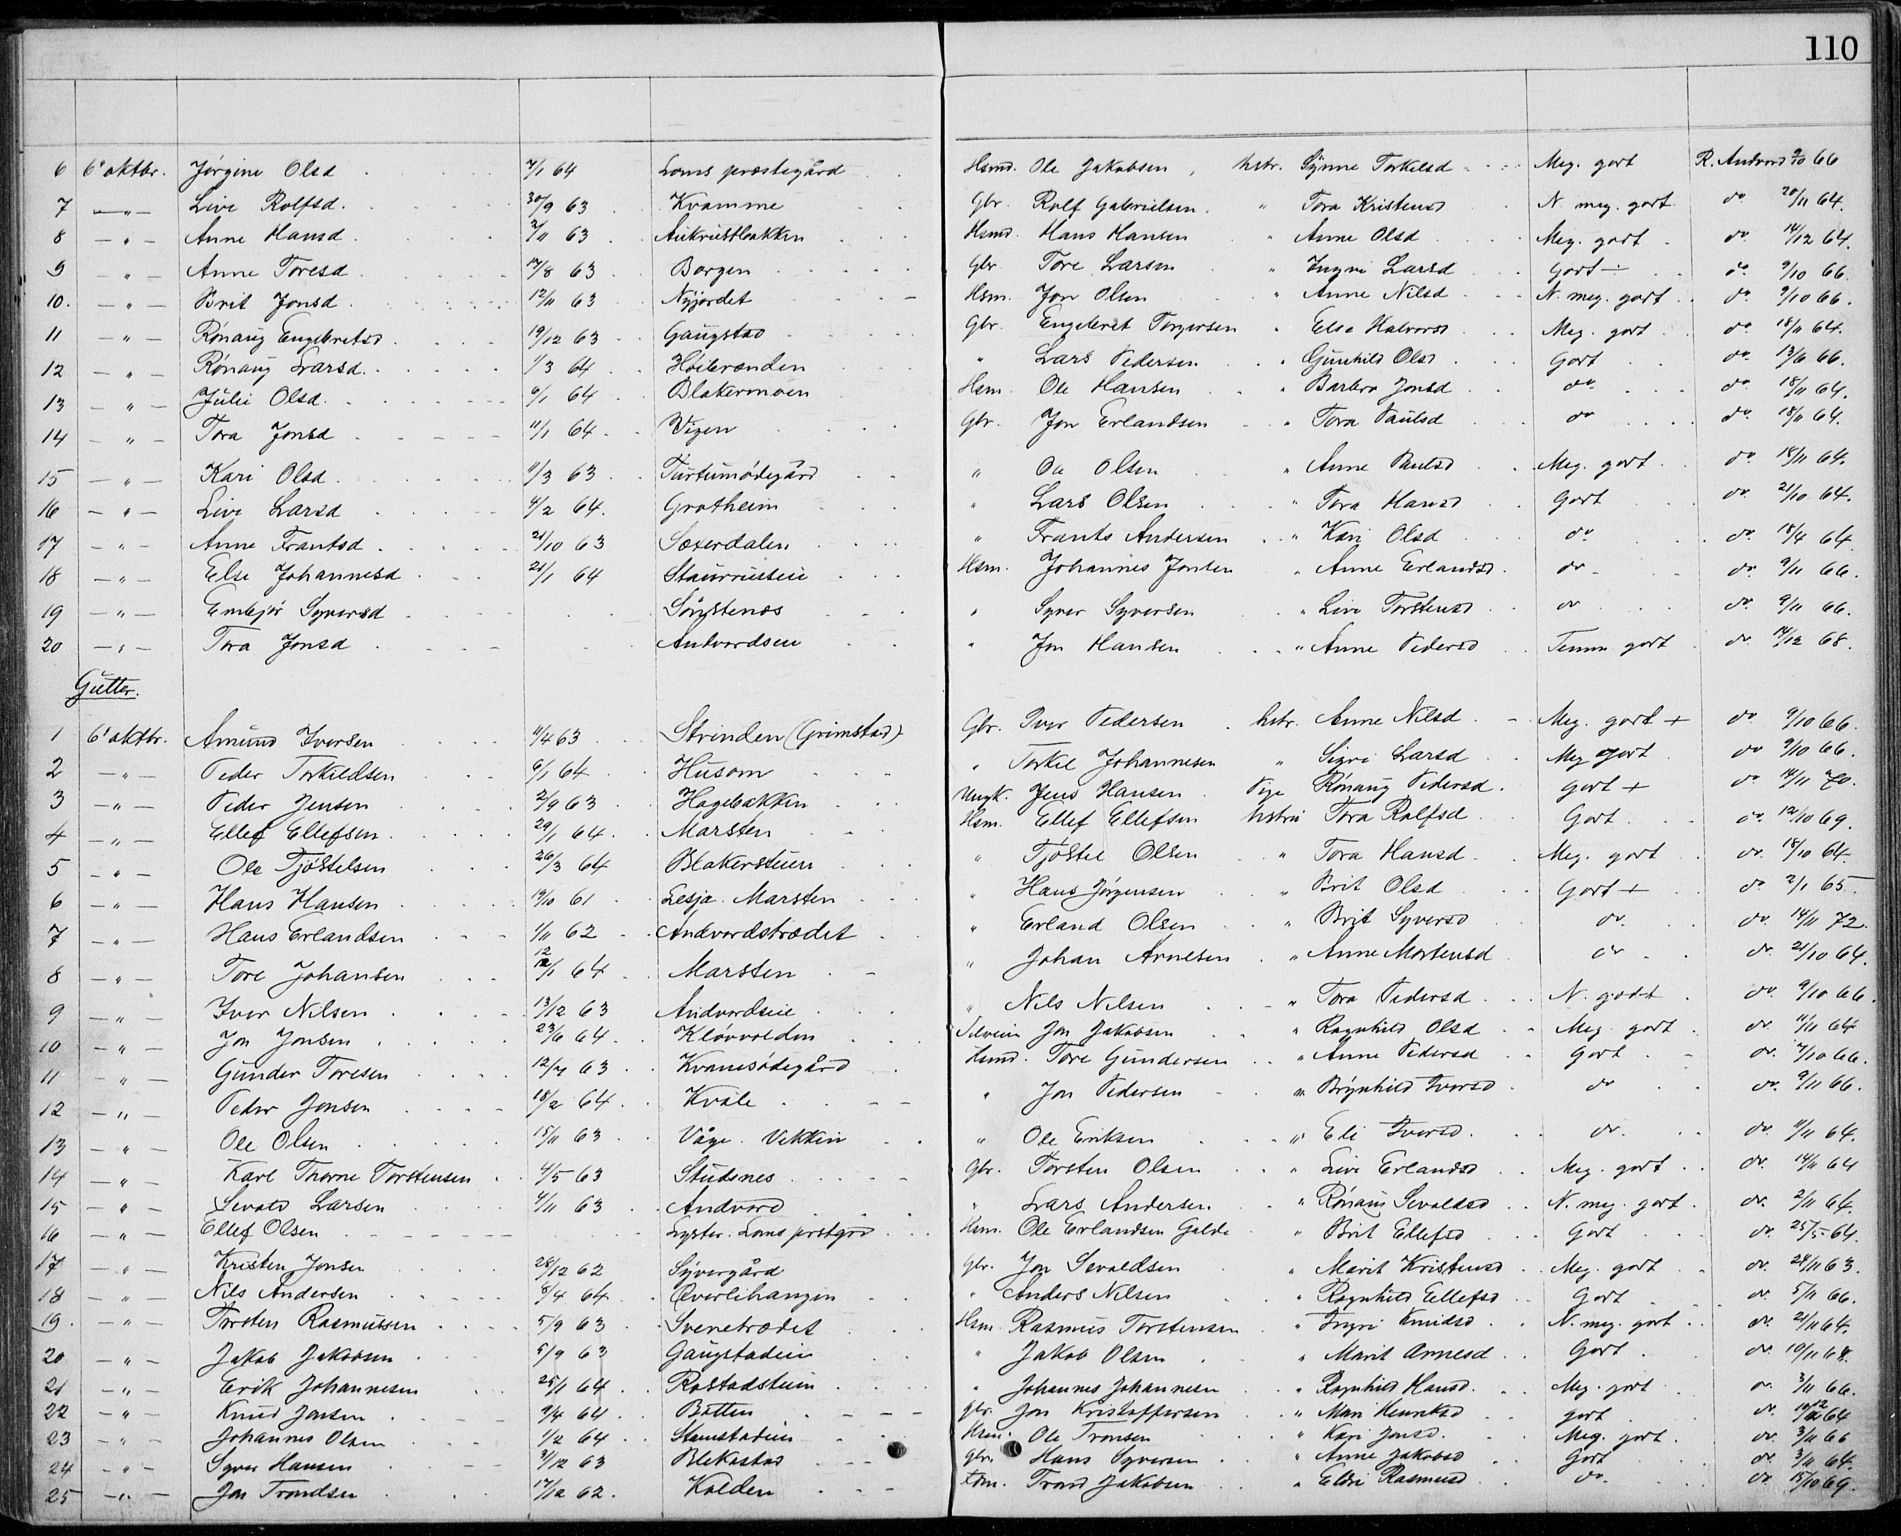 110
6 6' oktbr. Jørgine Olsd 7/1 64 Loms præstegård Hsmd. Ole Jakobsen, hstr. Synne Torkilsd Meg. godt R. Andvord 9/10 66
7 — " — Live Rolfsd. 30/9 63 Kvamme Gbr. Rolf Gabrielsen. " Tora Kristensd N. meg. godt do 20/11 64.
8 — " — Anne Hansd. 2/11 63 Aukrustbakken Hsmd. Hans Hansen " Anne Olsd Meg. godt do 14/12 64.
9 — " — Anne Toresd. 17/8 63 Borgen Gbr Tore Larsen " Ingri Larsd Godt ÷ do 9/10 66.
10. — " — Brit Jonsd. 12/11 63 Nyjordet Hsm. Jon Olsen " Anne Nilsd N. meg. godt do 9/10 66.
11 — " — Rønaug Engebretsd 19/12 63 Gaugstad Gbr. Engebret Torgersen " Else Halvorsd Meg. godt do 18/11 64.
12 — " — Rønaug Larsd. 1/3 64 Høibrænden " Lars Pedersen " Gunhild Olsd Godt do 13/6 66.
13 — " — Juli Olsd. 6/1 64 Blakermoen Hsm. Ole Hansen " Barbro Jonsd do do 18/11 64.
14 — " — Tora Jonsd 11/1 64 Vigen Gbr. Jon Erlandsen " Tora Paulsd do do 18/11 64.
15 — " — Kari Olsd 9/3 63 Furtumødegård " Ole Olsen " Anne Paulsd Meg. godt do 18/11 64.
16 — " — Live Larsd 4/2 64. Grotheim " Lars Olsen " Tora Hansd Godt do 21/10 64.
17 — " — Anne Frantsd 21/10 63 Soxerdalen " Frants Andersen " Kari Olsd do do 18/4 64
18 — " — Else Johannesd 21/1 64 Staurusteie Hsm. Johannes Jonsen " Anne Erlandsd do do 9/11 66.
19 — " — Embjør Syversd Sørstenæs " Syver Syversen " Live Torstensd do do 9/11 66.
20 — " — Tora Jonsd Andvordseie " Jon Hansen " Anne Pedersd Temm. godt do 14/12 68.
Gutter.
1 6' oktbr. Amund Iversen 11/4 63 Strinden (Grimstad) Gbr. Iver Pedersen hstr. Anne Nilsd Meg. godt + do 9/10 66.
2 — " — Peder Torkildsen 6/1 64 Husom " Torkil Johannesen " Sigri Larsd Meg godt do 9/10 66.
3 — " — Peder Jensen 2/9 63 Hagebakken Ungk. Jens Hansen Pige Rønaug Pedersd. godt + do 14/11 70.
4 — " — Ellef Ellefsen 29/1 64. Marsten Hsm. Ellef Ellefsen hstru Tora Rolfsd Godt. do 12/10 69.
5 — " — Ole Tjøstelsen 26/3 64 Blakersteien " Tjøstel Olsen " Tora Hansd. Meg. godt do 18/10 64.
6 — " — Hans Hansen 19/10 61 Lesja. Marsten " Hans Jørgensen " Brit Olsd Godt + do 2/1 65
7 — " — Hans Erlandsen 1/11 62 Andvordstrædet " Erland Olsen " Brit Syversd do do 14/11 72.
8 — " — Tore Johansen 12/1 64 Marsten " Johan Arnesen " Anne Mortensd do do 21/10 64.
9 — " — Iver Nilsen 13/12 63 Andvordseie " Nils Nilsen " Tora Pedersd N. godt do 9/10 66.
10 — " — Jon Jonsen 23/6 64 Kløvvolden Jon Jakobsen " Ragnhild Olsd Meg. godt do 11/11 64
11 — " — Gunder Toresen 12/7 63 Kvamsødegård Hsmd. Tore Gundersen " Anne Pedersd Godt do 7/10 66.
12 — " — Peder Jonsen 18/2 64 Kvåle " Jon Pedersen " Brynhild Iversd do do 9/11 66.
13 — " — Ole Olsen 15/11 63 Våge. Vekkin " Ole Eriksen " Eli Iversd. do do 11/11 64.
14 — " — Karl Thorne Torstensen 4/5 63 Studsnes Gbr. Torsten Olsen " Live Erlandsd Meg. godt do 14/11 64
15 — " — Sevald Larsen 4/11 63 Andvord " Lars Andersen " Rønaug Sevaldsd N. meg. godt do 2/11 64.
16 — " — Ellef Olsen Lyster. Loms prstgrd Hsm. Ole Erlandsen Galde " Brit Ellefsd Godt do 25/5 64.
17 — " — Kristen Jonsen 28/12 62 Syvergård Gbr. Jon Sevaldsen " Marit Kristensd Meg. godt do 28/11 63.
18 — " — Nils Andersen 8/4 64. Øverlihangen " Anders Nilsen " Ragnhild Ellefsd Godt do 5/11 66.
19. — " — Torsten Rasmussen 5/9 63 Svenstrædet Hsm. Rasmus Torstensen " Ingri Knudsd N. meg. godt do 21/11 64.
20 — " — Jakob Jakobsen 5/9 63 Gaugstadeie " Jakob Olsen " Marit Arnesd Godt do 10/11 68.
21 — " — Erik Johannesen 25/1 64 Rostadsteien " Johannes Johannesen " Ragnhild Hansd. Meg. godt do 3/11 66.
22 — " — Knud Jonsen 9/4 64 Botten Gbr. Jon Kristoffersen " Mari Henriksd godt do 19/12 64
23 — " — Johannes Olsen 1/2 64. Stamstadeie Hsm. Ole Tronsen " Kari Jonsd. Meg. godt do 3/11 66
24 — " — Syver Hansen 31/12 63 Blekastad Gbr. Hans Syversen " Anne Jakobsd Godt do 3/11 64.
25 — " — Jon Trondsen 17/12 62. Kolden Hsm. Trond Jakobsen " Eldri Rasmusd do. do 15/10 69.